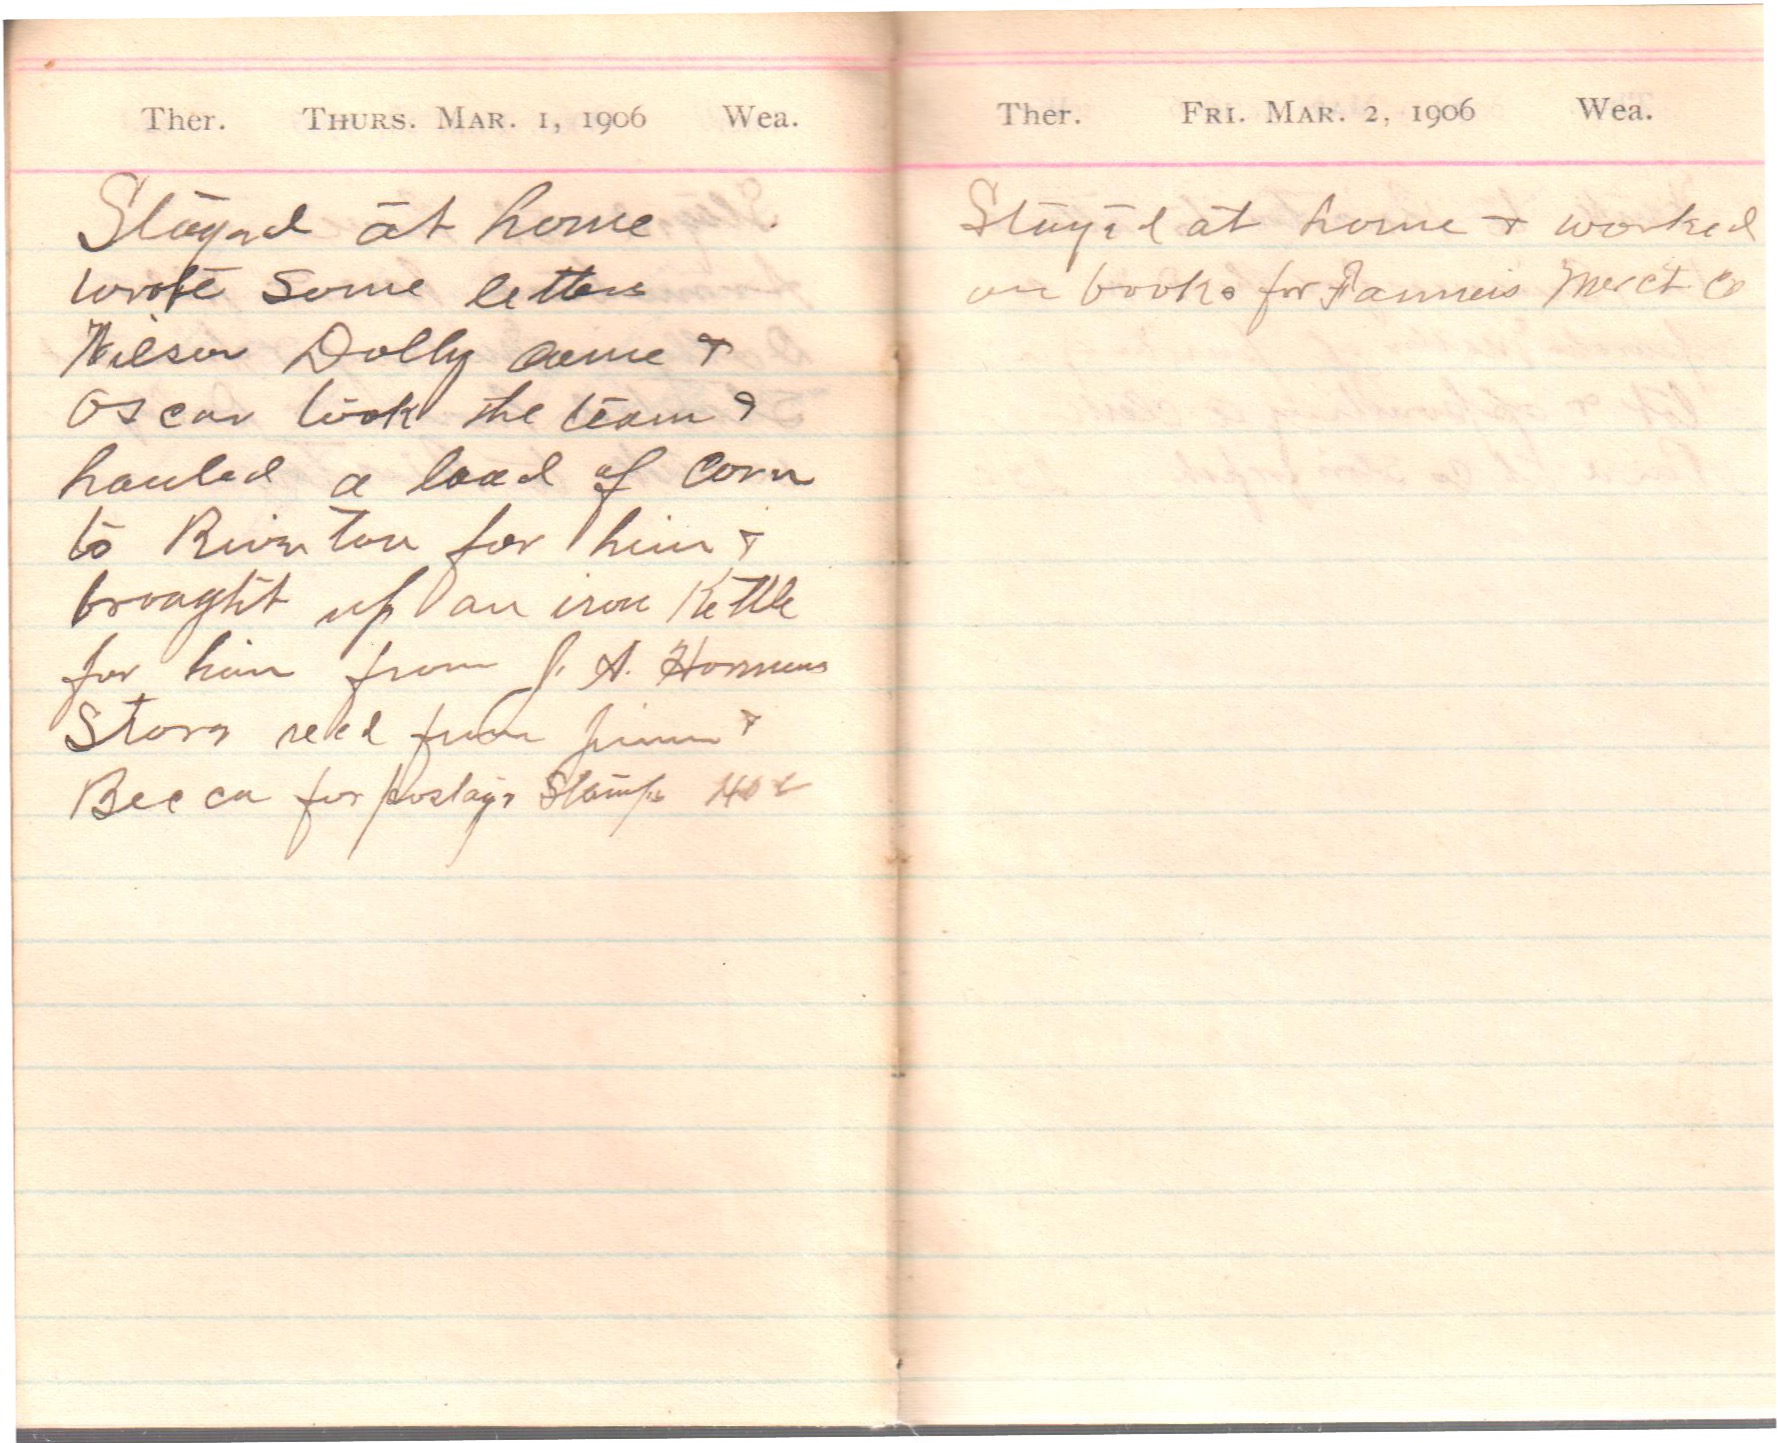 Ther. THURS. MAR. 1, 1906 Wea.
Stayed at home
wrote some letters
Wilson Dolly came &
Oscar took the team &
hauled a load of corn
to Riverton for him &
brought up an iron Kettle
for him from J. A.
Store recd from Jimm &
Becca for postage Stamps
Ther. FRI. MAR. 2, 1906 Wea.
Stayed at home & worked
on books for Farmers Merct. Co